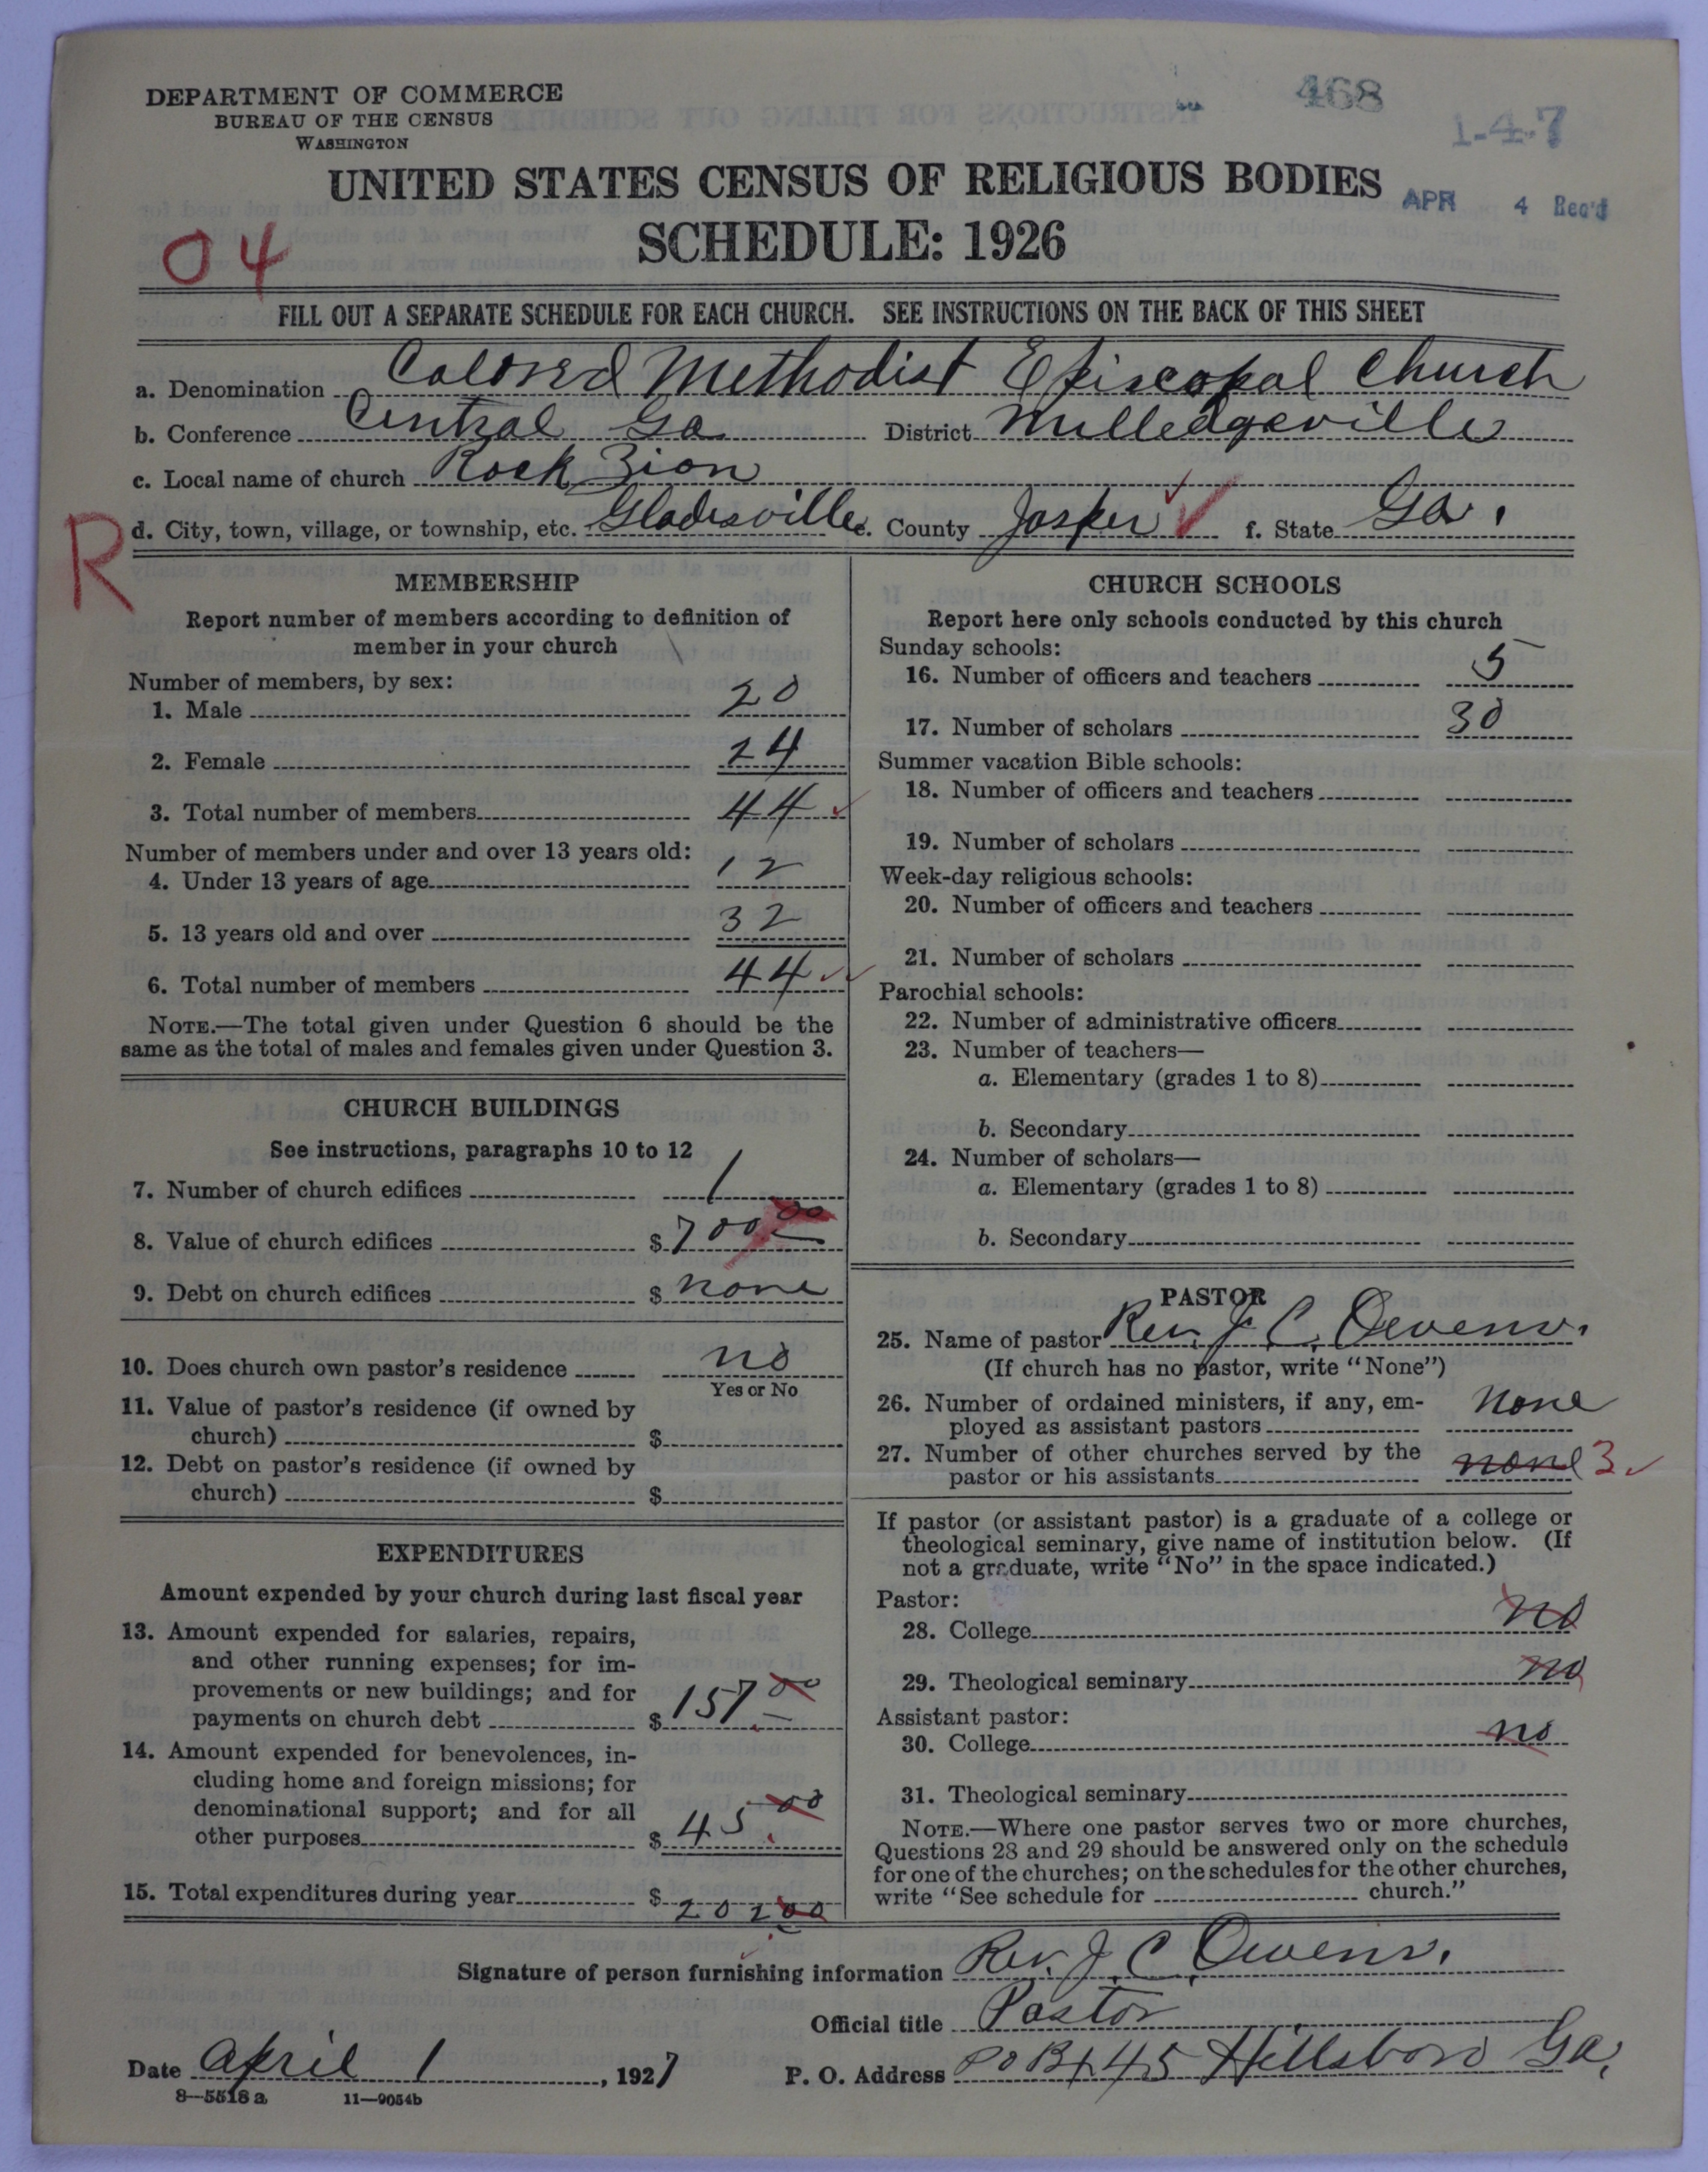 DEPARTMENT OF COMMERCE
BUREAU OF THE CENSUS
WASHINGTON
468
1-4-7
UNITED STATES CENSUS OF RELIGIOUS BODIES
APR 4 Rec'd
SCHEDULE: 1926
04
FILL OUT A SEPARATE SCHEDULE FOR EACH CHURCH. SEE INSTRUCTIONS ON THE BACK OF THIS SHEET
a. Denomination Colored Methodist Episcopal Church
b. Conference Central Ga District Milledgeville
c. Local name of church Rock Zion
d. City, town, village, or township, etc. Gladesville e. County Jasper f. State Ga.
R
MEMBERSHIP
Report number of members according to definition of
member in your church
Number of members, by sex:
1. Male 20
2. Female 24
3. Total number of members 44
Number of members under and over 13 years old:
4. Under 13 years of age 12
5. 13 years old and over 32
6. Total number of members 44
NOTE.—The total given under Question 6 should be the
same as the total of males and females given under Question 3.
CHURCH BUILDINGS
See instructions, paragraphs 10 to 12
7. Number of church edifices 1
8. Value of church edifices $ 700 00
9. Debt on church edifices $ none
10. Does church own pastor's residence no
Yes or No
11. Value of pastor's residence (if owned by
church) $
12. Debt on pastor's residence (if owned by
church) $
EXPENDITURES
Amount expended by your church during last fiscal year
13. Amount expended for salaries, repairs,
and other running expenses; for im-
provements or new buildings; and for
payments on church debt $ 157.00
14. Amount expended for benevolences, in-
cluding home and foreign missions; for
denominational support; and for all
other purposes $ 45.00
15. Total expenditures during year $ 202 00
CHURCH SCHOOLS
Report here only schools conducted by this church
Sunday schools:
16. Number of officers and teachers 5
17. Number of scholars 30
Summer vacation Bible schools:
18. Number of officers and teachers
19. Number of scholars
Week-day religious schools:
20. Number of officers and teachers
21. Number of scholars
Parochial schools:
22. Number of administrative officers
23. Number of teachers—
a. Elementary (grades 1 to 8)
b. Secondary
24. Number of scholars—
a. Elementary (grades 1 to 8)
b. Secondary
PASTOR
25. Name of pastor Rev. J. C. Owens.
(If church has no pastor, write "None")
26. Number of ordained ministers, if any, em-
ployed as assistant pastors none
27. Number of other churches served by the
pastor or his assistants none 3
If pastor (or assistant pastor) is a graduate of a college or
theological seminary, give name of institution below. (If
not a graduate, write "No" in the space indicated.)
Pastor:
28. College no
29. Theological seminary no
Assistant pastor:
30. College no
31. Theological seminary
NOTE.—Where one pastor serves two or more churches,
Questions 28 and 29 should be answered only on the schedule
for one of the churches; on the schedules for the other churches,
write "See schedule for church."
Signature of person furnishing information Rev. J. C. Owens.
Official title Pastor
Date April 1, 1927 P. O. Address P O Bx 45 Hillsboro Ga.
8—5518 a 11—9054b